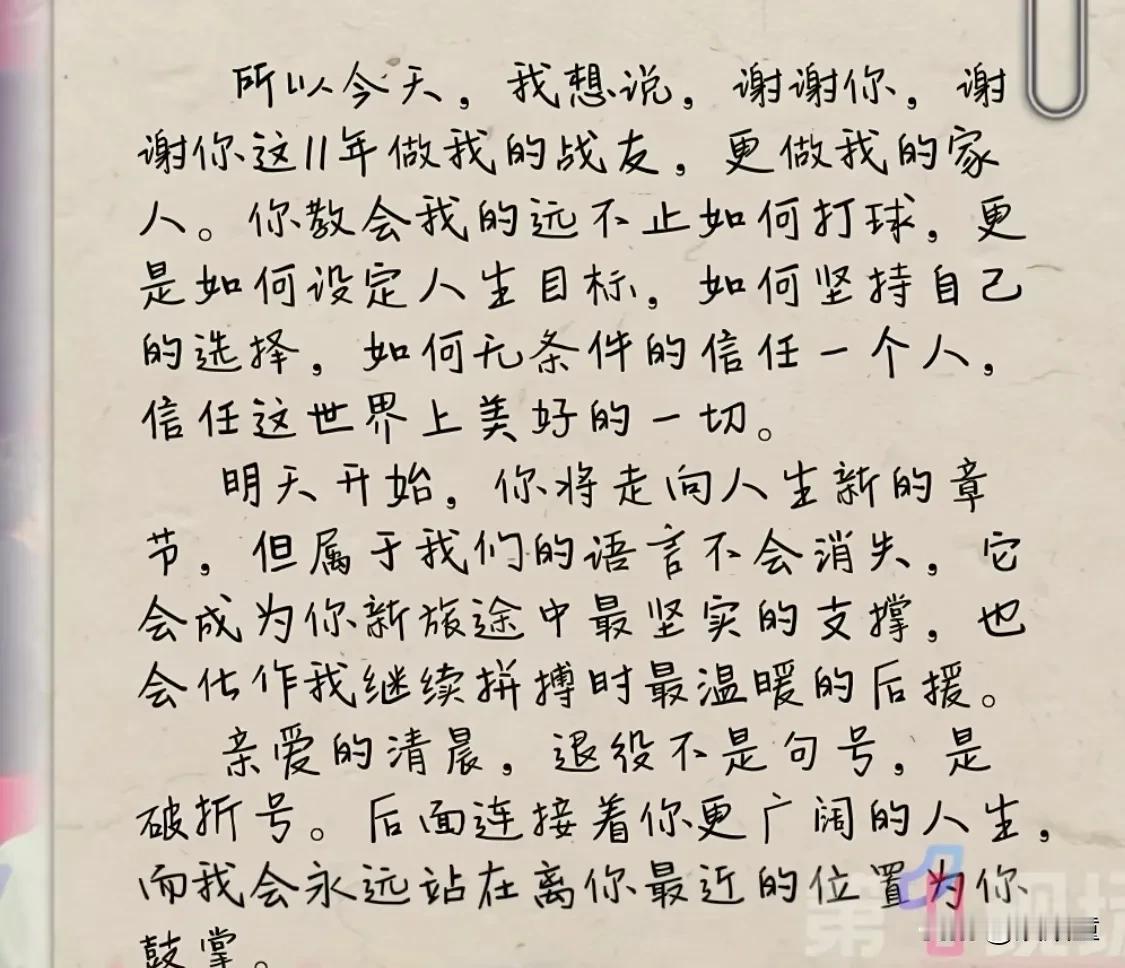 所以今天，我想说，谢谢你，谢
谢你这11年做我的战友，更做我的家
人。你教会我的远不止如何打球，更
是如何设定人生目标，如何坚持自己
的选择，如何无条件的信任一个人，
信任这世界上美好的一切。
明天开始，你将走向人生新的章
节，但属于我们的语言不会消失，它
会成为你新旅途中最坚实的支撑，也
会化作我继续拼搏时最温暖的后援。
亲爱的清晨，退役不是句号，是
破折号。后面连接着你更广阔的人生，
而我会永远站在离你最近的位置为你
鼓掌。